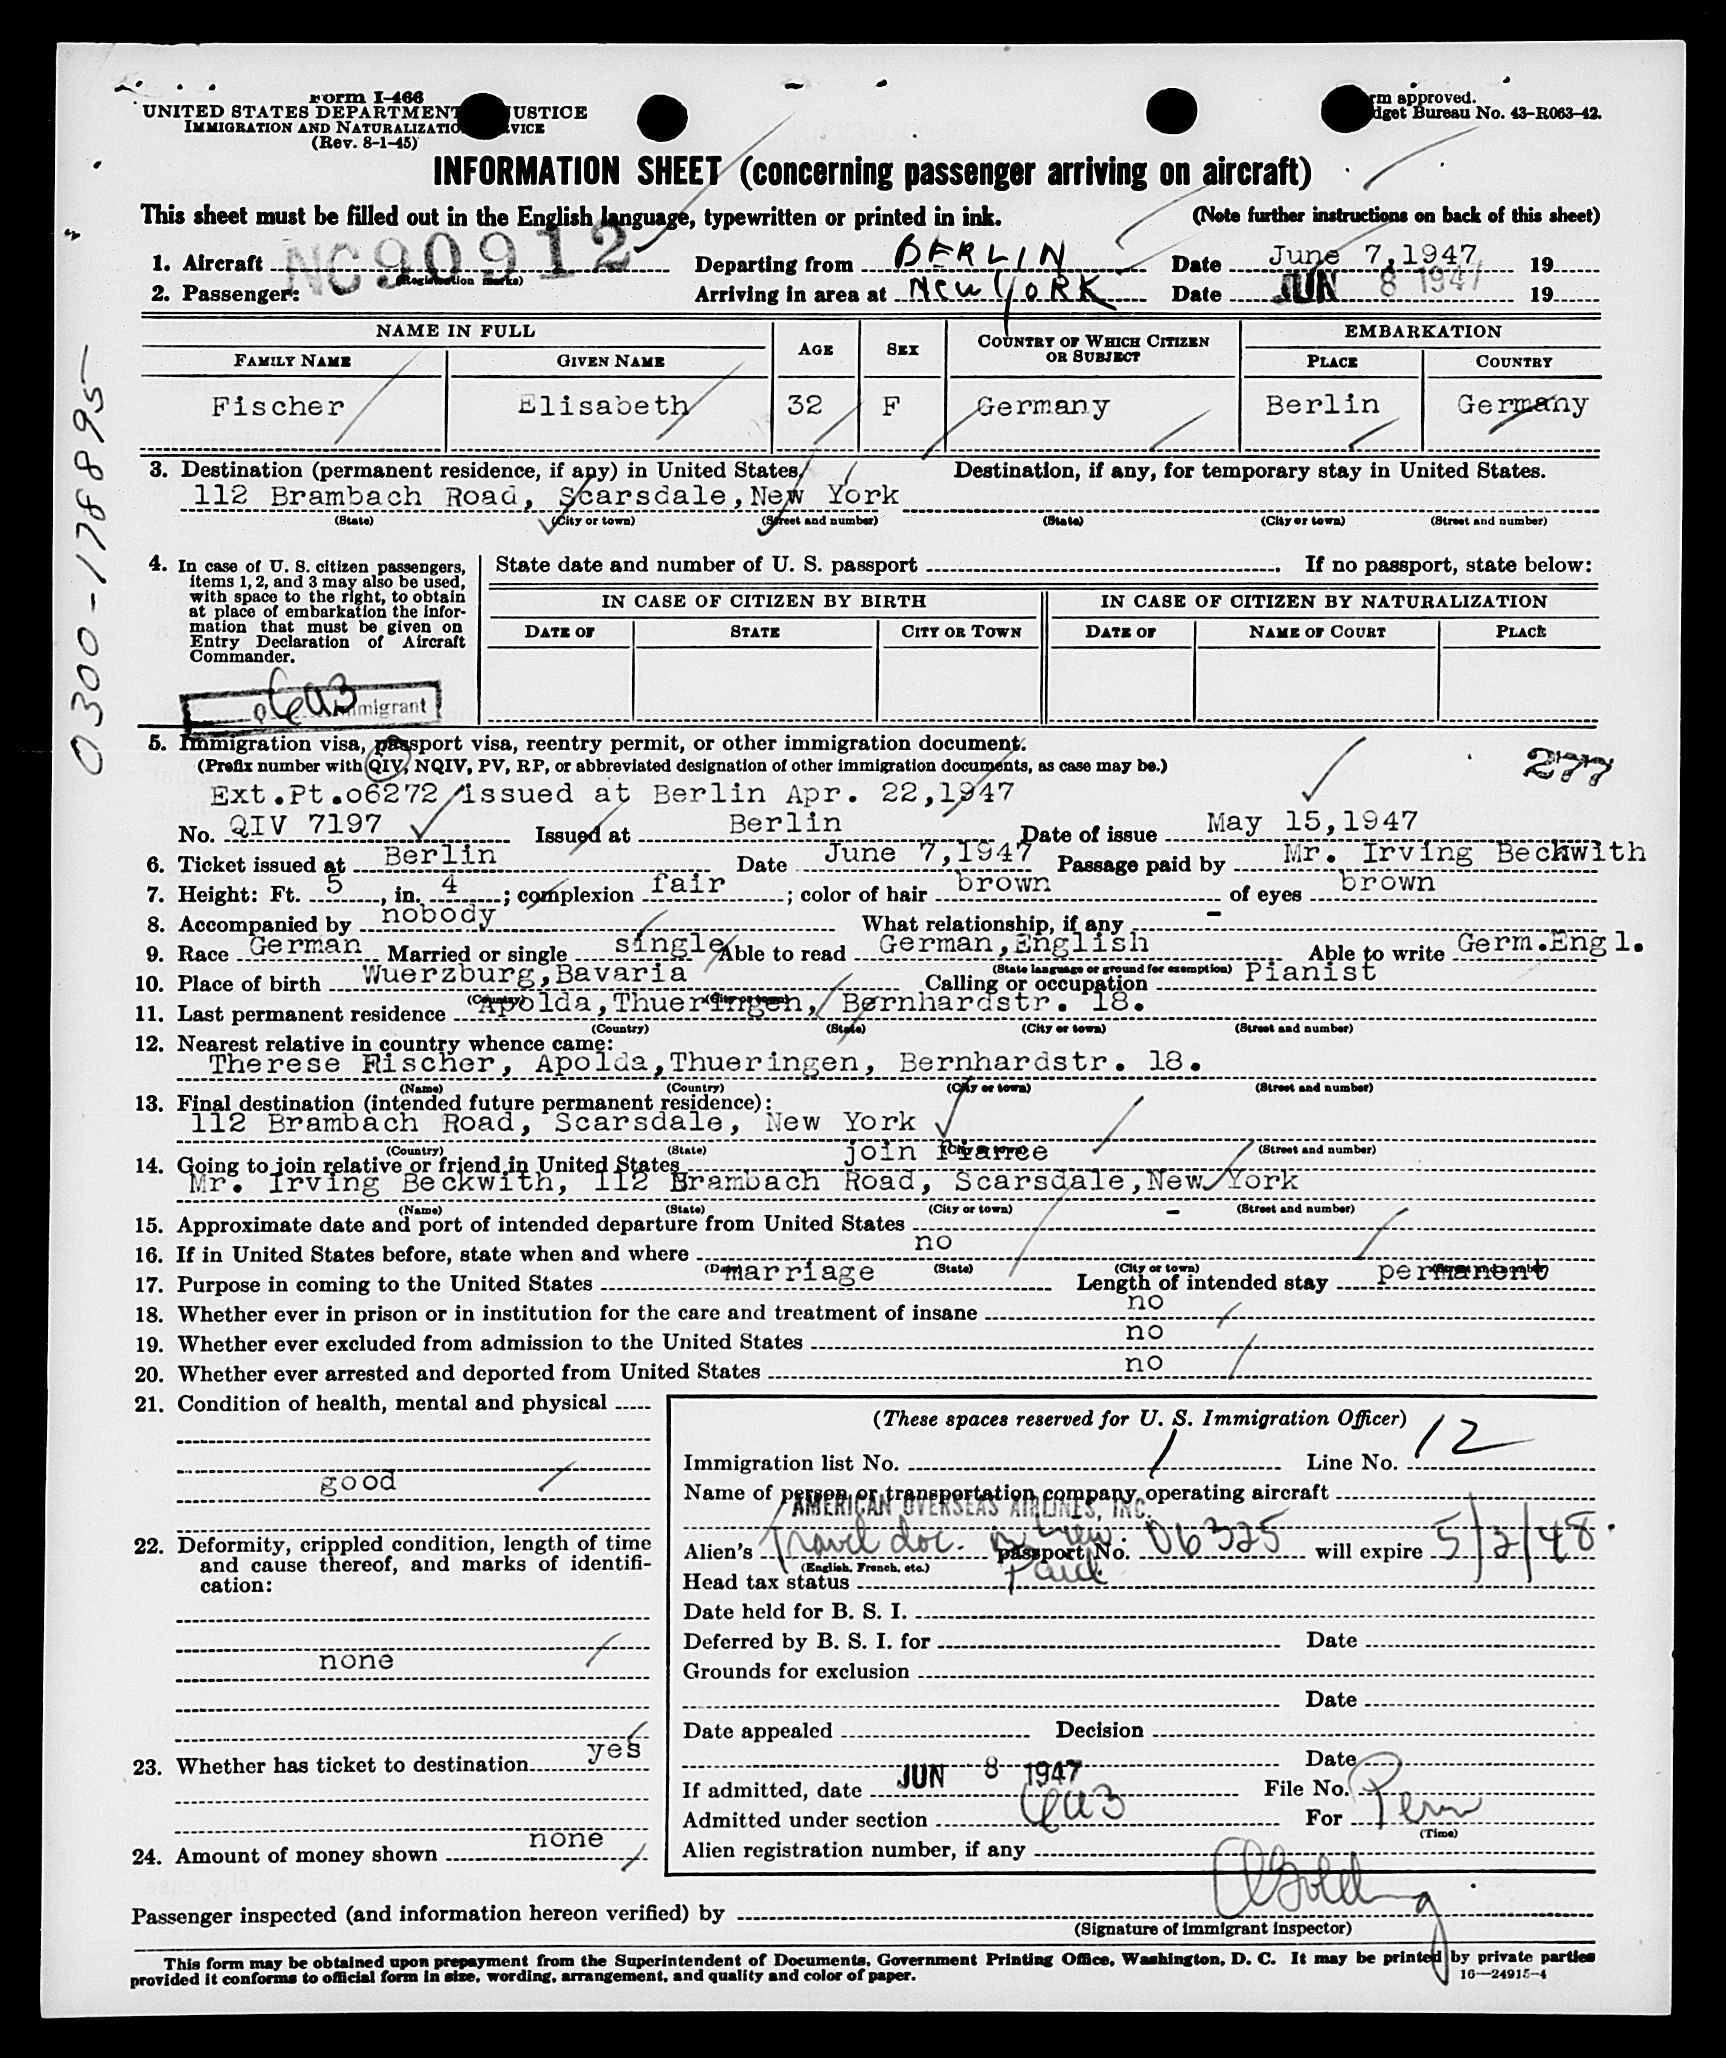 Form I-466
UNITED STATES DEPARTMENT USTICE
IMMIGRATION AND NATURALIZATIO VICE
(Rev. 8-1-45)
rm approved.
dget Bureau No. 43-R063-42.
INFORMATION SHEET (concerning passenger arriving on aircraft)
This sheet must be filled out in the English language, typewritten or printed in ink. (Note further instructions on back of this sheet)
1. Aircraft NC90912 (Registration marks) Departing from BERLIN Date June 7,1947 19
2. Passenger: Arriving in area at New YORK Date JUN 8 1947 19
NAME IN FULL AGE SEX COUNTRY OF WHICH CITIZEN OR SUBJECT EMBARKATION
FAMILY NAME GIVEN NAME PLACE COUNTRY
Fischer Elisabeth 32 F Germany Berlin Germany
3. Destination (permanent residence, if any) in United States. Destination, if any, for temporary stay in United States.
112 Brambach Road, Scarsdale,New York
(State) (City or town) (Street and number) (State) (City or town) (Street and number)
0300-178895
4. In case of U. S. citizen passengers,
items 1, 2, and 3 may also be used,
with space to the right, to obtain
at place of embarkation the infor-
mation that must be given on
Entry Declaration of Aircraft
Commander.
State date and number of U. S. passport . If no passport, state below:
IN CASE OF CITIZEN BY BIRTH IN CASE OF CITIZEN BY NATURALIZATION
DATE OF STATE CITY OR TOWN DATE OF NAME OF COURT PLACE
6a3 mmigrant
5. Immigration visa, passport visa, reentry permit, or other immigration document.
(Prefix number with QIV, NQIV, PV, RP, or abbreviated designation of other immigration documents, as case may be.)
277
Ext.Pt.o6272 issued at Berlin Apr. 22,1947
No. QIV 7197 Issued at Berlin Date of issue May 15,1947
6. Ticket issued at Berlin Date June 7,1947 Passage paid by Mr. Irving Beckwith
7. Height: Ft. 5, in. 4; complexion fair; color of hair brown of eyes brown
8. Accompanied by nobody What relationship, if any -
9. Race German Married or single single Able to read German,English Able to write Germ.Engl.
(State language or ground for exemption)
10. Place of birth Wuerzburg,Bavaria Calling or occupation Pianist
(Country) (City or town)
11. Last permanent residence Apolda,Thueringen, Bernhardstr. 18.
(Country) (State) (City or town) (Street and number)
12. Nearest relative in country whence came:
Therese Fischer, Apolda,Thueringen, Bernhardstr. 18.
(Name) (Country) (City or town) (Street and number)
13. Final destination (intended future permanent residence):
112 Brambach Road, Scarsdale, New York
(Country) (State) (City or town) (Street and number)
14. Going to join relative or friend in United States join Fiance
Mr. Irving Beckwith, 112 Brambach Road, Scarsdale,New York
(Name) (State) (City or town) (Street and number)
15. Approximate date and port of intended departure from United States -
16. If in United States before, state when and where no
(Date) (State) (City or town) (Street and number)
17. Purpose in coming to the United States marriage Length of intended stay permanent
18. Whether ever in prison or in institution for the care and treatment of insane no
19. Whether ever excluded from admission to the United States no
20. Whether ever arrested and deported from United States no
21. Condition of health, mental and physical
good
22. Deformity, crippled condition, length of time
and cause thereof, and marks of identifi-
cation:
none
23. Whether has ticket to destination yes
24. Amount of money shown none
(These spaces reserved for U. S. Immigration Officer)
Immigration list No. 1 Line No. 12
Name of person or transportation company operating aircraft
AMERICAN OVERSEAS AIRLINES, INC.
Alien's Travel doc. passport No. 06325 will expire 5/2/48
(English, French, etc.)
Head tax status Paid
Date held for B. S. I.
Deferred by B. S. I. for Date
Grounds for exclusion
Date
Date appealed Decision
Date
If admitted, date JUN 8 1947 File No.
Admitted under section 6a3 For Perm
(Time)
Alien registration number, if any
Passenger inspected (and information hereon verified) by
(Signature of immigrant inspector)
This form may be obtained upon prepayment from the Superintendent of Documents, Government Printing Office, Washington, D. C. It may be printed by private parties
provided it conforms to official form in size, wording, arrangement, and quality and color of paper. 16—24915-4